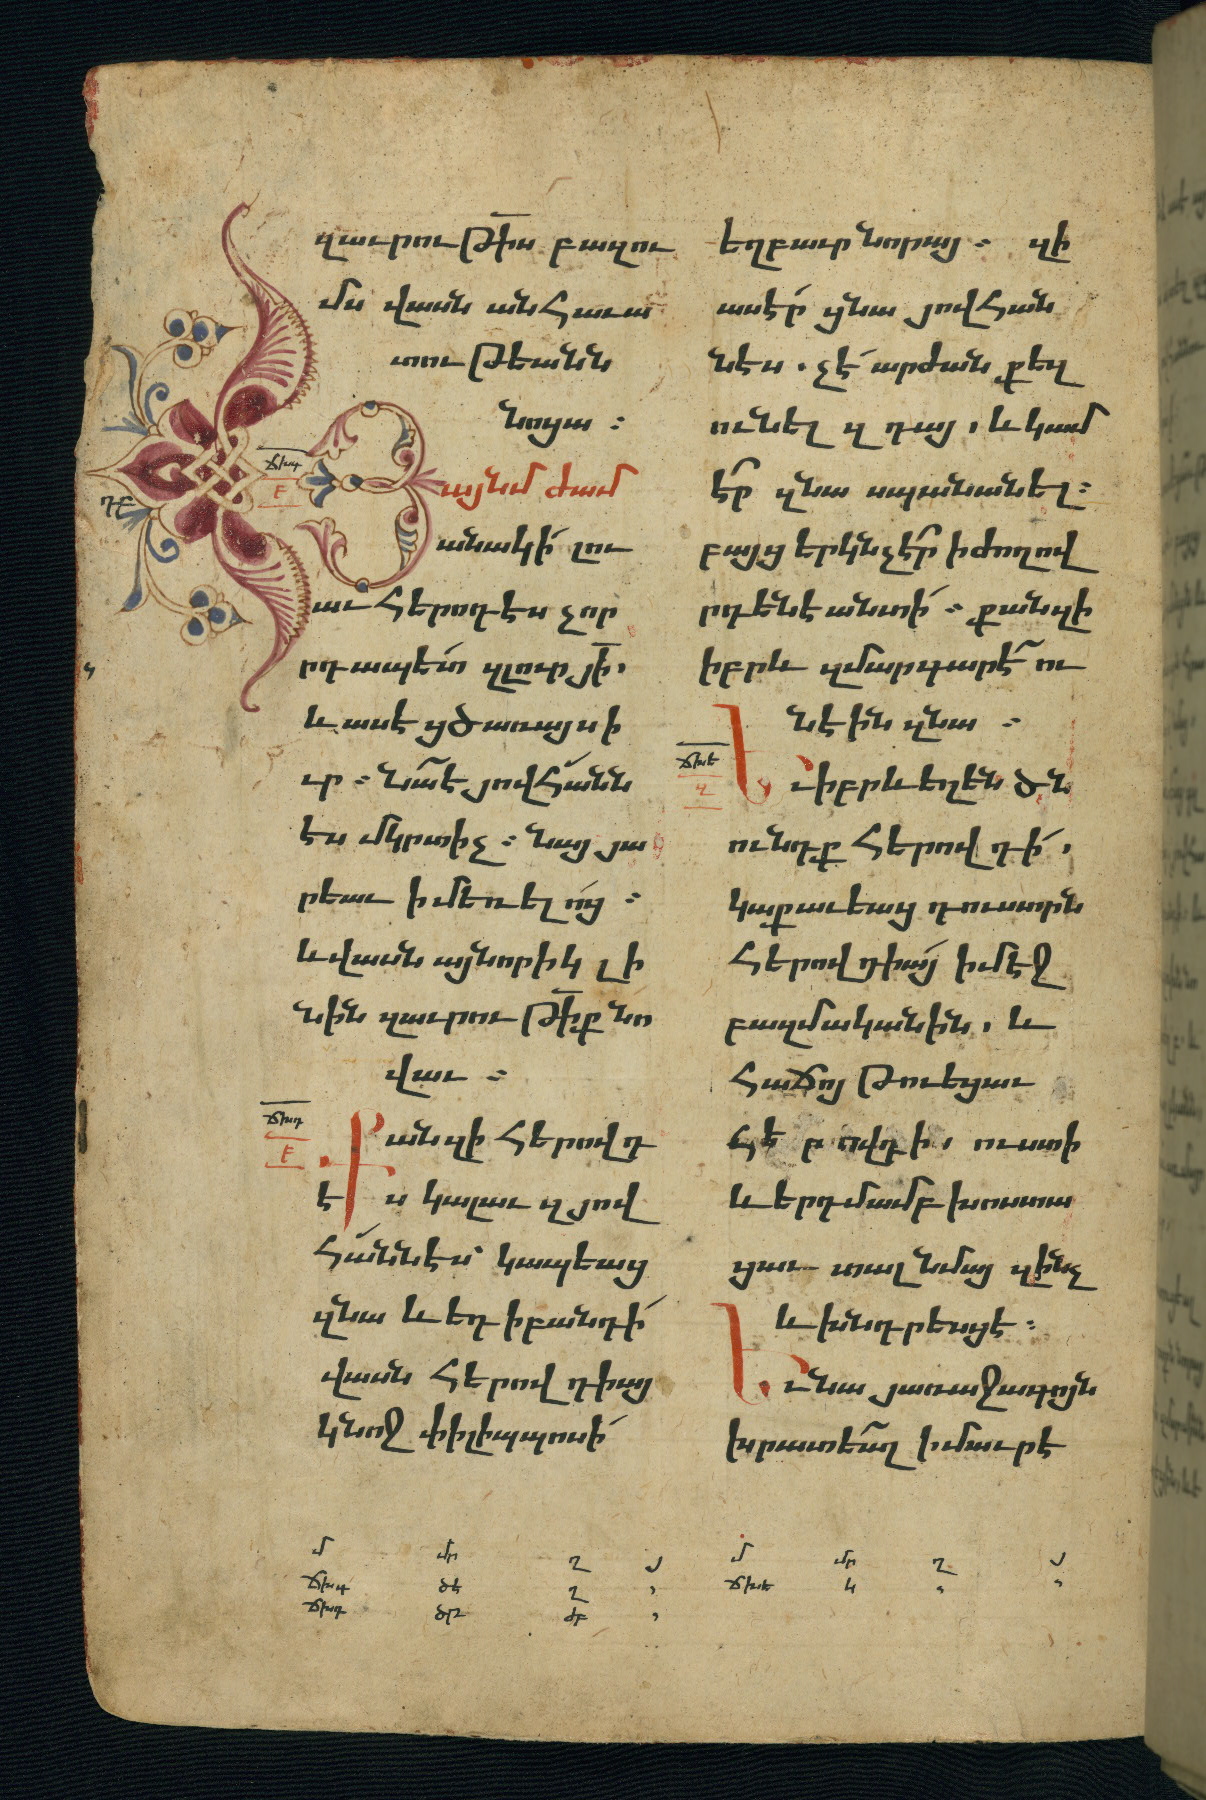 զաւրութիս բազու
մս վասն անհաւա
տութեանն
նոցա ։
Յայնմ ժամ
անակի լու
աւ հերովդէս չոր
րդապետ զլուր յի,
և ասէ ցծառայս ի
ւր ։ նա է յովհանն
ես մկրտիչ ։ նա յա
րեաւ ի մեռելոց ։
և վասն այնորիկ լի
նին զաւրութիք նո
վաւ ։
Քանզի հերովդ
ես կալաւ զյով
հաննես կապեաց
զնա և եդ ի բանդի
վասն հերովդիայ
կնոջ փիլիպպոսի
եղբաւր նորայ ։ զի
ասէր ցնա յովհան
նէս . չէ արժան քեզ
ունել զ դայ , և կամ
էր զնա սպանանել ։
բայց երկնչէր ի ժողով
րդենէ անտի ։ քանզի
իբրև զմարգարէ ու
նէին զնա ։
Եւ իբրև եղեն ծն
ունդք հերովդի ,
կաքաւեաց դուստրն
հերովդիայ ի մէջ
բազմականին , և
հաճոյ թուեցաւ
հերովդի , ուստի
և երդմամբ խոստա
ցաւ տալ նմայ զինչ
և խնդրեսցէ ։
Եւ նա յառաջագոյն
խրատեալ ի մաւրէ
ճխգ
ճխդ
ճխե
մ մր ղ յ մ մր ղ յ
ճխգ ծե ղ , ճխե կ , ,
ճխդ ծը ժբ ,